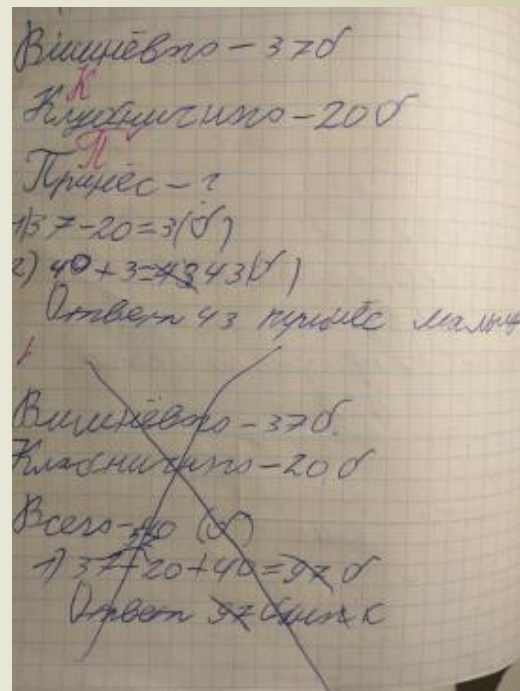 Вишнёвого – 37б
К
Клубничного – 20б
П
Принёс – ?
1) 37-20=3(б)
2) 40+3=43 43(б)
Ответ 43 принёс малыш
Вишнёвого – 37б.
Клабничного – 20б
Всего – 40 (б)
1) 37+20+40=97 б
Ответ 97